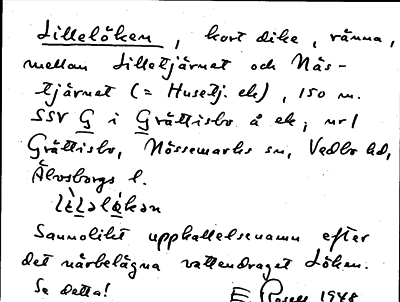 Lillelöken, kort dike, ränna,
mellan Lilletjärnet och Näs-
tjärnet (= Husetj. ek), 150 m.
SSV G i Grättisbo å ek; nr 1
Grättisbo, Nössemarks sn, Vedbo hd,
Älvsborgs l.
Sannolikt uppkallelsenamn efter
det närbelägna vattendraget Löken.
Se detta! E. Rosell 1948